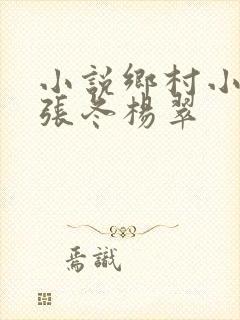 小説鄉村小
張冬楊翠
焉識